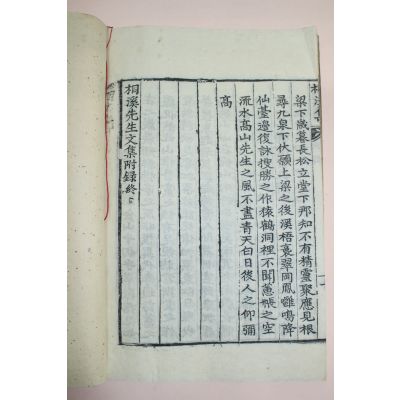 梁下歲暮長松立堂下那知不有精靈聚應見根
尋九泉下伏願上梁之後溪梧衰翠岡鳳雝鳴降
仙臺邊復詠搜勝之作猿鶴洞裡不聞蕙帳之空
流水高山先生之風不盡青天白日後人之仰彌
高
桐溪先生文集附錄終